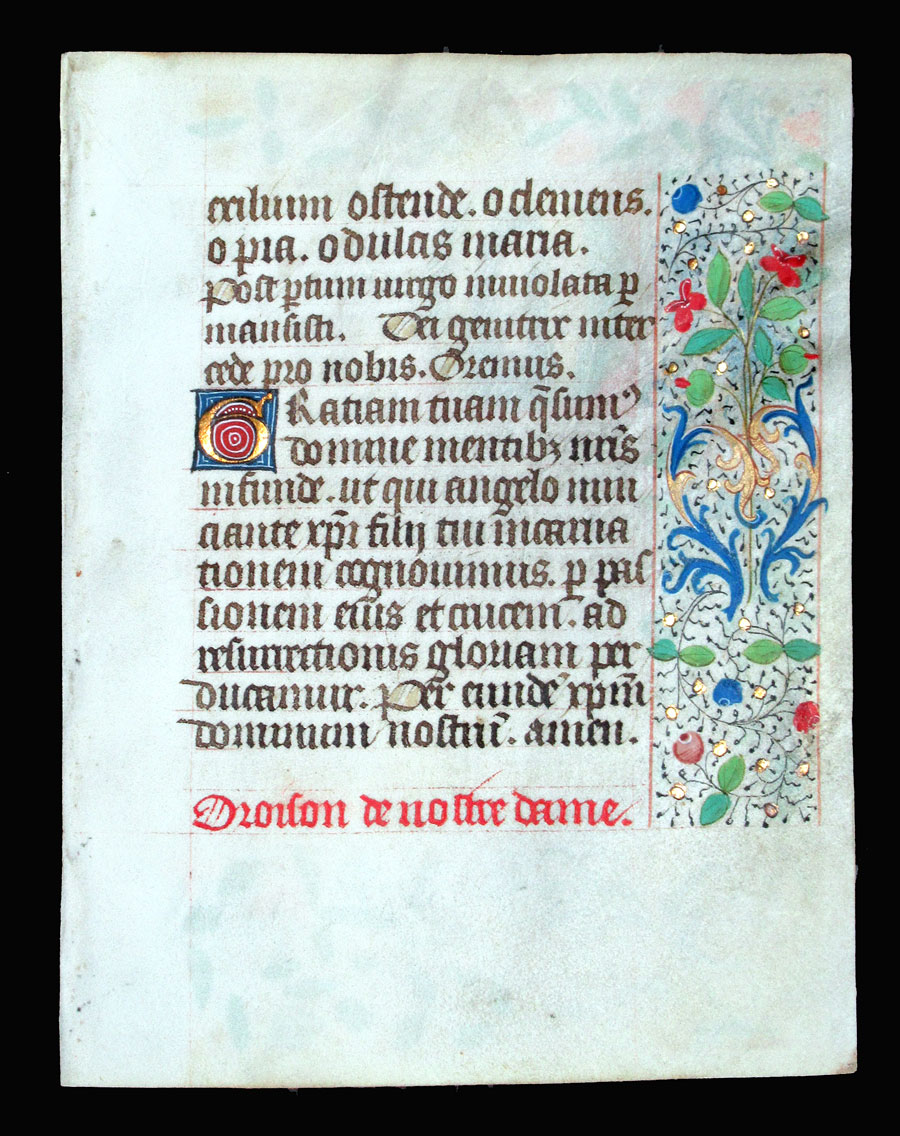 exilium ostende. o clemens.
o pia. o dulcis maria.
Post ꝑtum uirgo inuiolata ꝑ
mansisti. Dei genitrix inter
cede pro nobis. Oremus.
GRatiam tuam q̄sumꝰ
domine mentibꝫ nr̄is
infunde. ut qui angelo nun
ciante xp̄i filij tui incarna
tionem cognouimus. ꝑ pas
sionem eius et crucem. ad
resurrectionis gloriam per
ducamur. Per eundē xp̄m
dominum nostrū. amen.
Oroison de nostre dame.